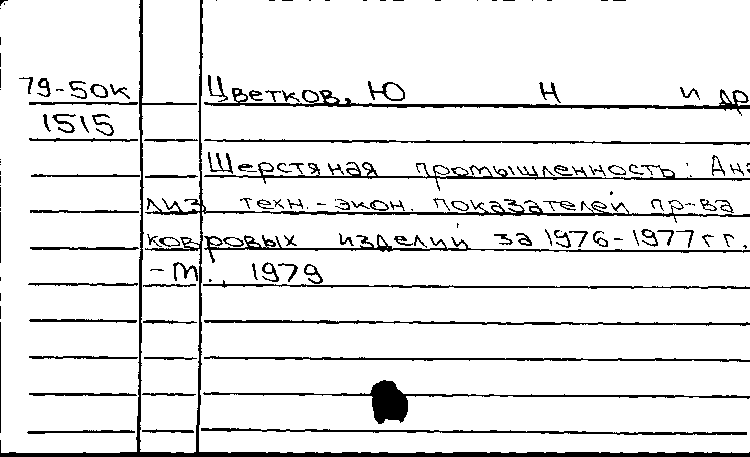 79-50к Цветков, Ю Н и др
1515
Шерстяная промышленность: Ана
лиз техн.-экон. показателей пр-ва
ковровых изделий за 1976-1977гг.
-М., 1979